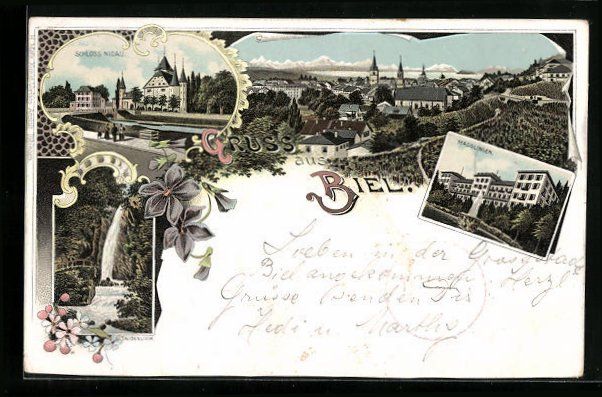 SCHLOSS NIDAU
GRUSS
AUS
BIEL.
MAGGLINGEN.
Soeben in der Grossstadt
Biel angekommen. Herzl
Grüsse senden Dir
Hedi u. Martha